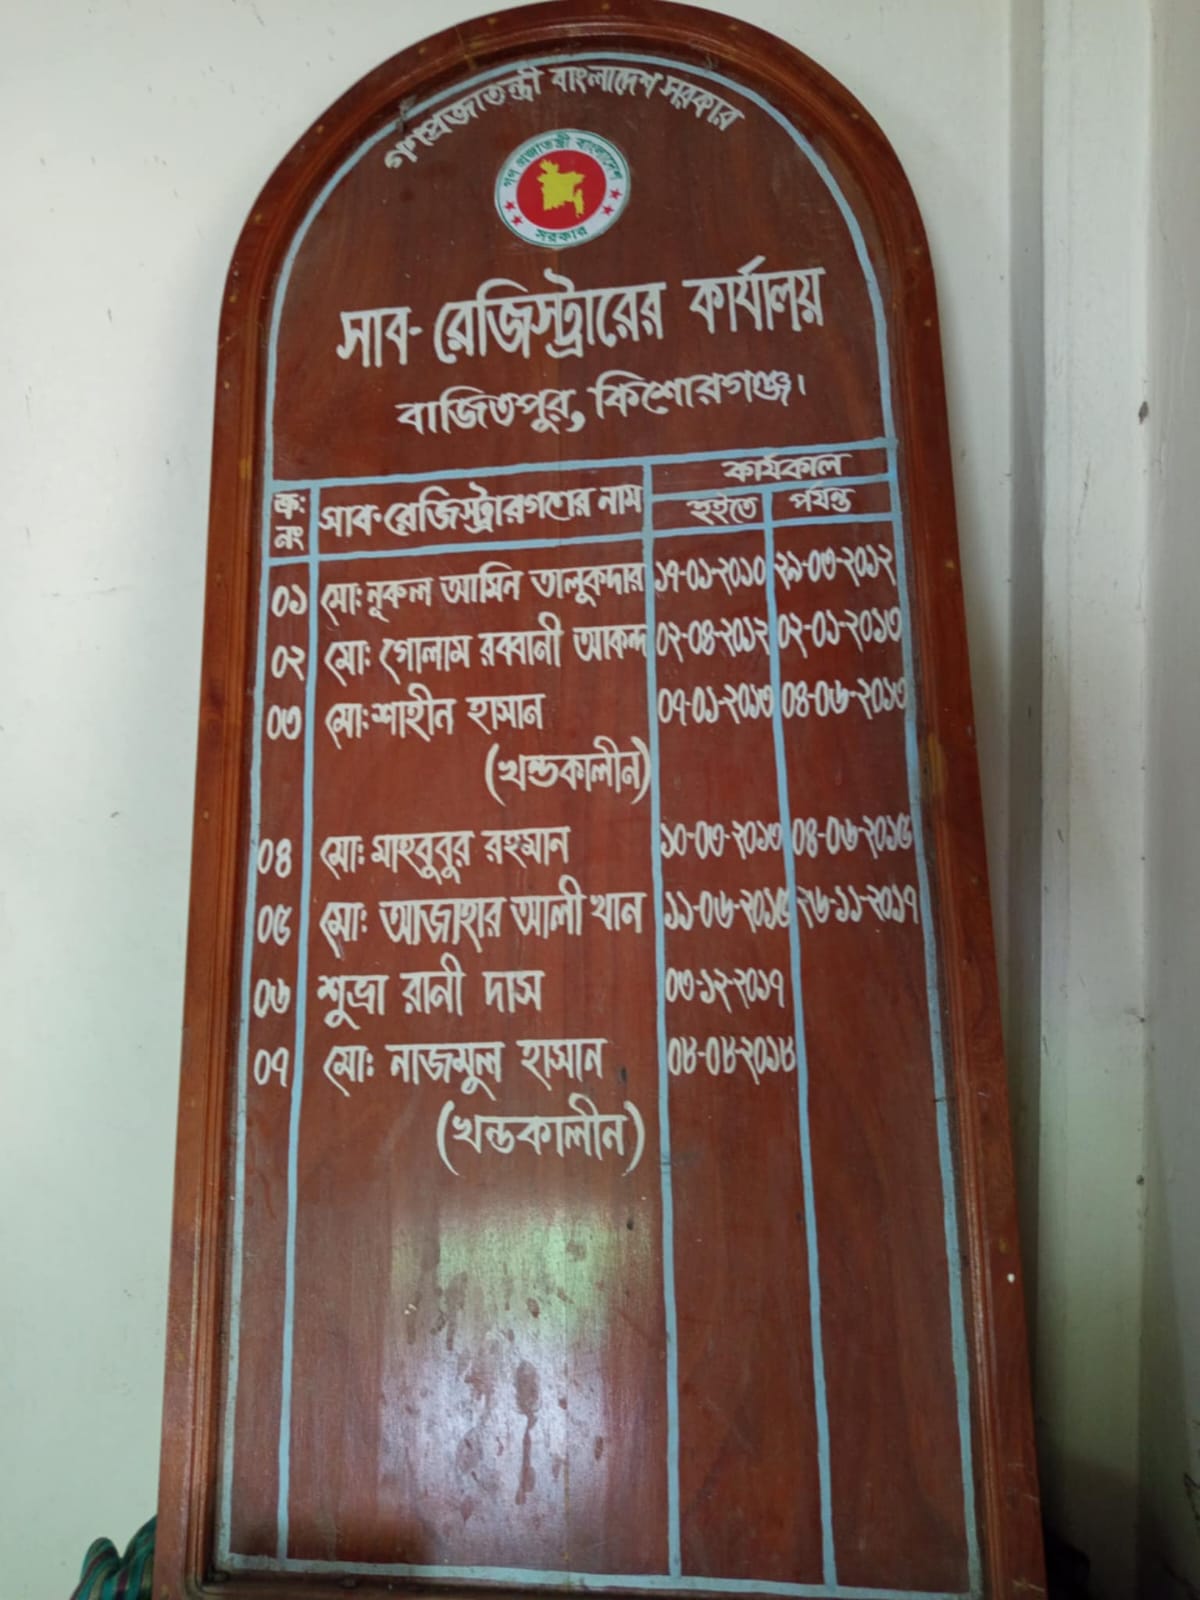 গণপ্রজাতন্ত্রী বাংলাদেশ সরকার
গণ প্রজাতন্ত্রী বাংলাদেশ
সরকার
সাব-রেজিস্ট্রারের কার্যালয়
বাজিতপুর, কিশোরগঞ্জ।
ক্র: নং সাব-রেজিস্ট্রারগণের নাম কার্যকাল
হইতে পর্যন্ত
০১ মো: নূরুল আমিন তালুকদার ১৭-০১-২০১০ ২৯-০৩-২০১২
০২ মো: গোলাম রব্বানী আকন্দ ০২-০৪-২০১২ ০২-০১-২০১৩
০৩ মো: শাহীন হাসান ০৭-০১-২০১৩ ০৪-০৬-২০১৩
(খন্ডকালীন)
০৪ মো: মাহবুবুর রহমান ১০-০৩-২০১৩ ০৪-০৬-২০১৫
০৫ মো: আজাহার আলী খান ১১-০৬-২০১৫ ২৬-১১-২০১৭
০৬ শুভ্রা রানী দাস ০৩-১২-২০১৭
০৭ মো: নাজমুল হাসান ০৮-০৮-২০১৮
(খন্ডকালীন)